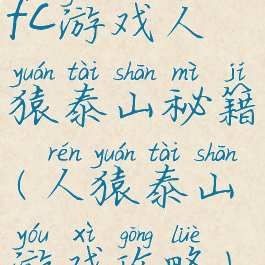 fc游戏人
yuán tài shān mì jí
猿泰山秘籍
rén yuán tài shān
(人猿泰山
yóu xì gōng lüè
游戏攻略)